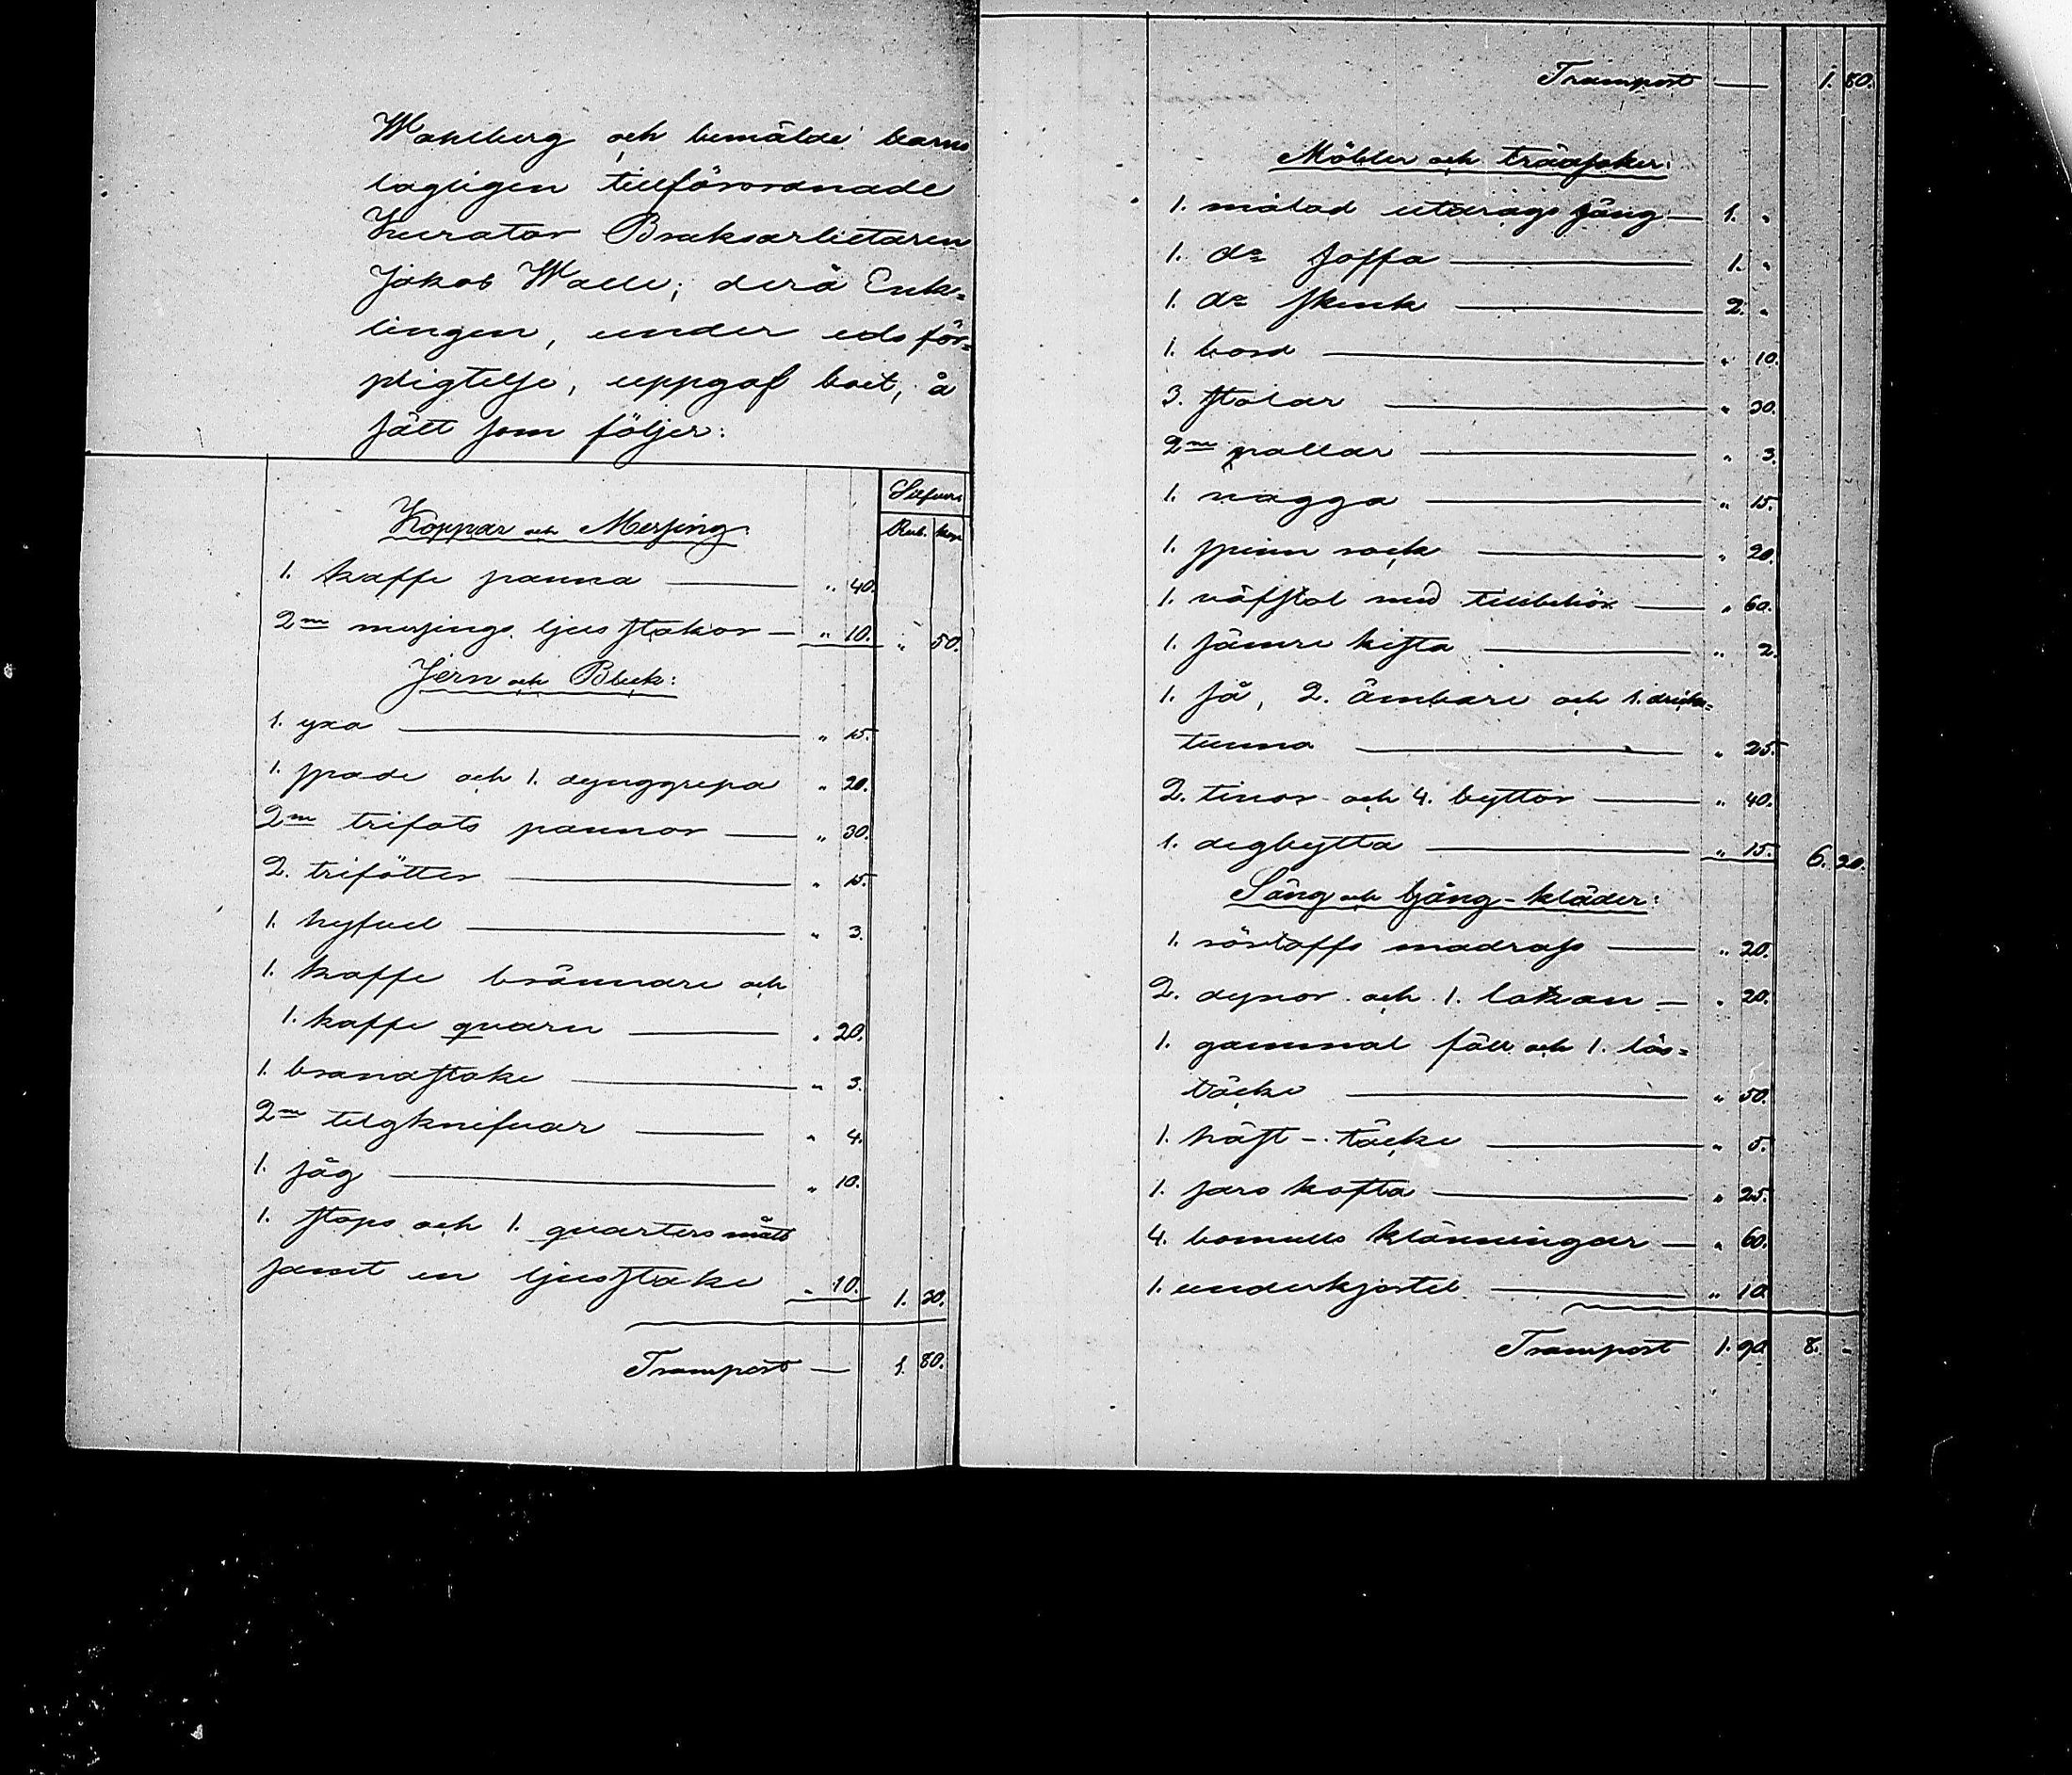 Wahlberg och bemälde barns
lagligen tillförordnade
Kurator Bruksarbetaren
Jakob Walli; derå Enk=
lingen, under eds för=
pligtelse, uppgaf boet, å
sätt som följer:
Silfver.
Rub. Kop.
Koppar och Messing:
1. kaffe panna — „ 40.
2ne messings ljusstakar — „ 10. „ 50.
Jern och Bleck:
1. yxa — „ 15.
1. spade och 1. dynggrepa „ 20.
2ne trifots pannor — „ 30.
2. trifötter — „ 15.
1. hyfvel — „ 3.
1. kaffe brännare och
1. kaffe quarn — „ 20.
1. brandstake — „ 3.
2ne telgknifvar — „ 4.
1. såg — „ 10.
1. stops och 1. quarters mått
samt en ljusstake „ 10. 1. 30.
Transport — 1. 80.
Transport — 1. 80.
Möbler och trädsaker:
1. målad utdrags säng — 1. „
1. do soffa — 1. „
1. do skänk — 2. „
1. bord — „ 10.
3. stolar — „ 30.
2ne pallar — „ 3.
1. vagga — „ 15.
1. spinn rock — „ 20.
1. väfstol med tillbehör — „ 60.
1. sämre kista — „ 2.
1. så, 2. ämbare och 1. dricks=
tunna — „ 25.
2. tinor och 4. byttor — „ 40.
1. degbytta — „ 15. 6. 20.
Säng och Gång-kläder:
1. rörtaffs madrass — „ 20.
2. dynor och 1. lakan — „ 20.
1. gammal fäll och 1. lös=
täcke — „ 50.
1. häst-täcke — „ 5.
1. sars kofta — „ 25.
4. bomulls klänningar — „ 60.
1. underkjortel — „ 10.
Transport 1. 90. 8. „